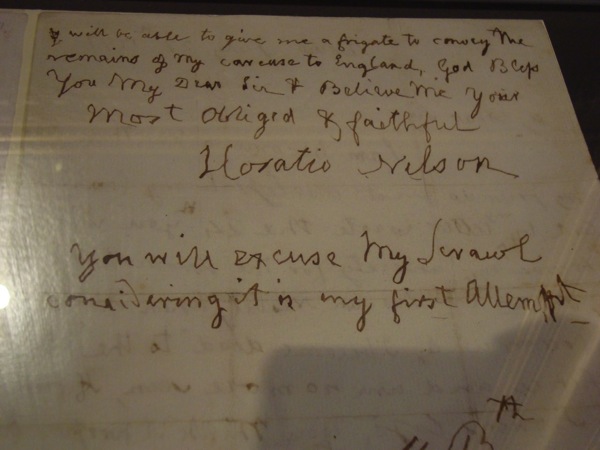 y will be able to give me a frigate to convey the
remains of my carcuse to England, God Bless
You My Dear Sir & Believe Me Your
Most Obliged & faithful
Horatio Nelson
You will excuse My Scrawl
considering it is my first Attempt